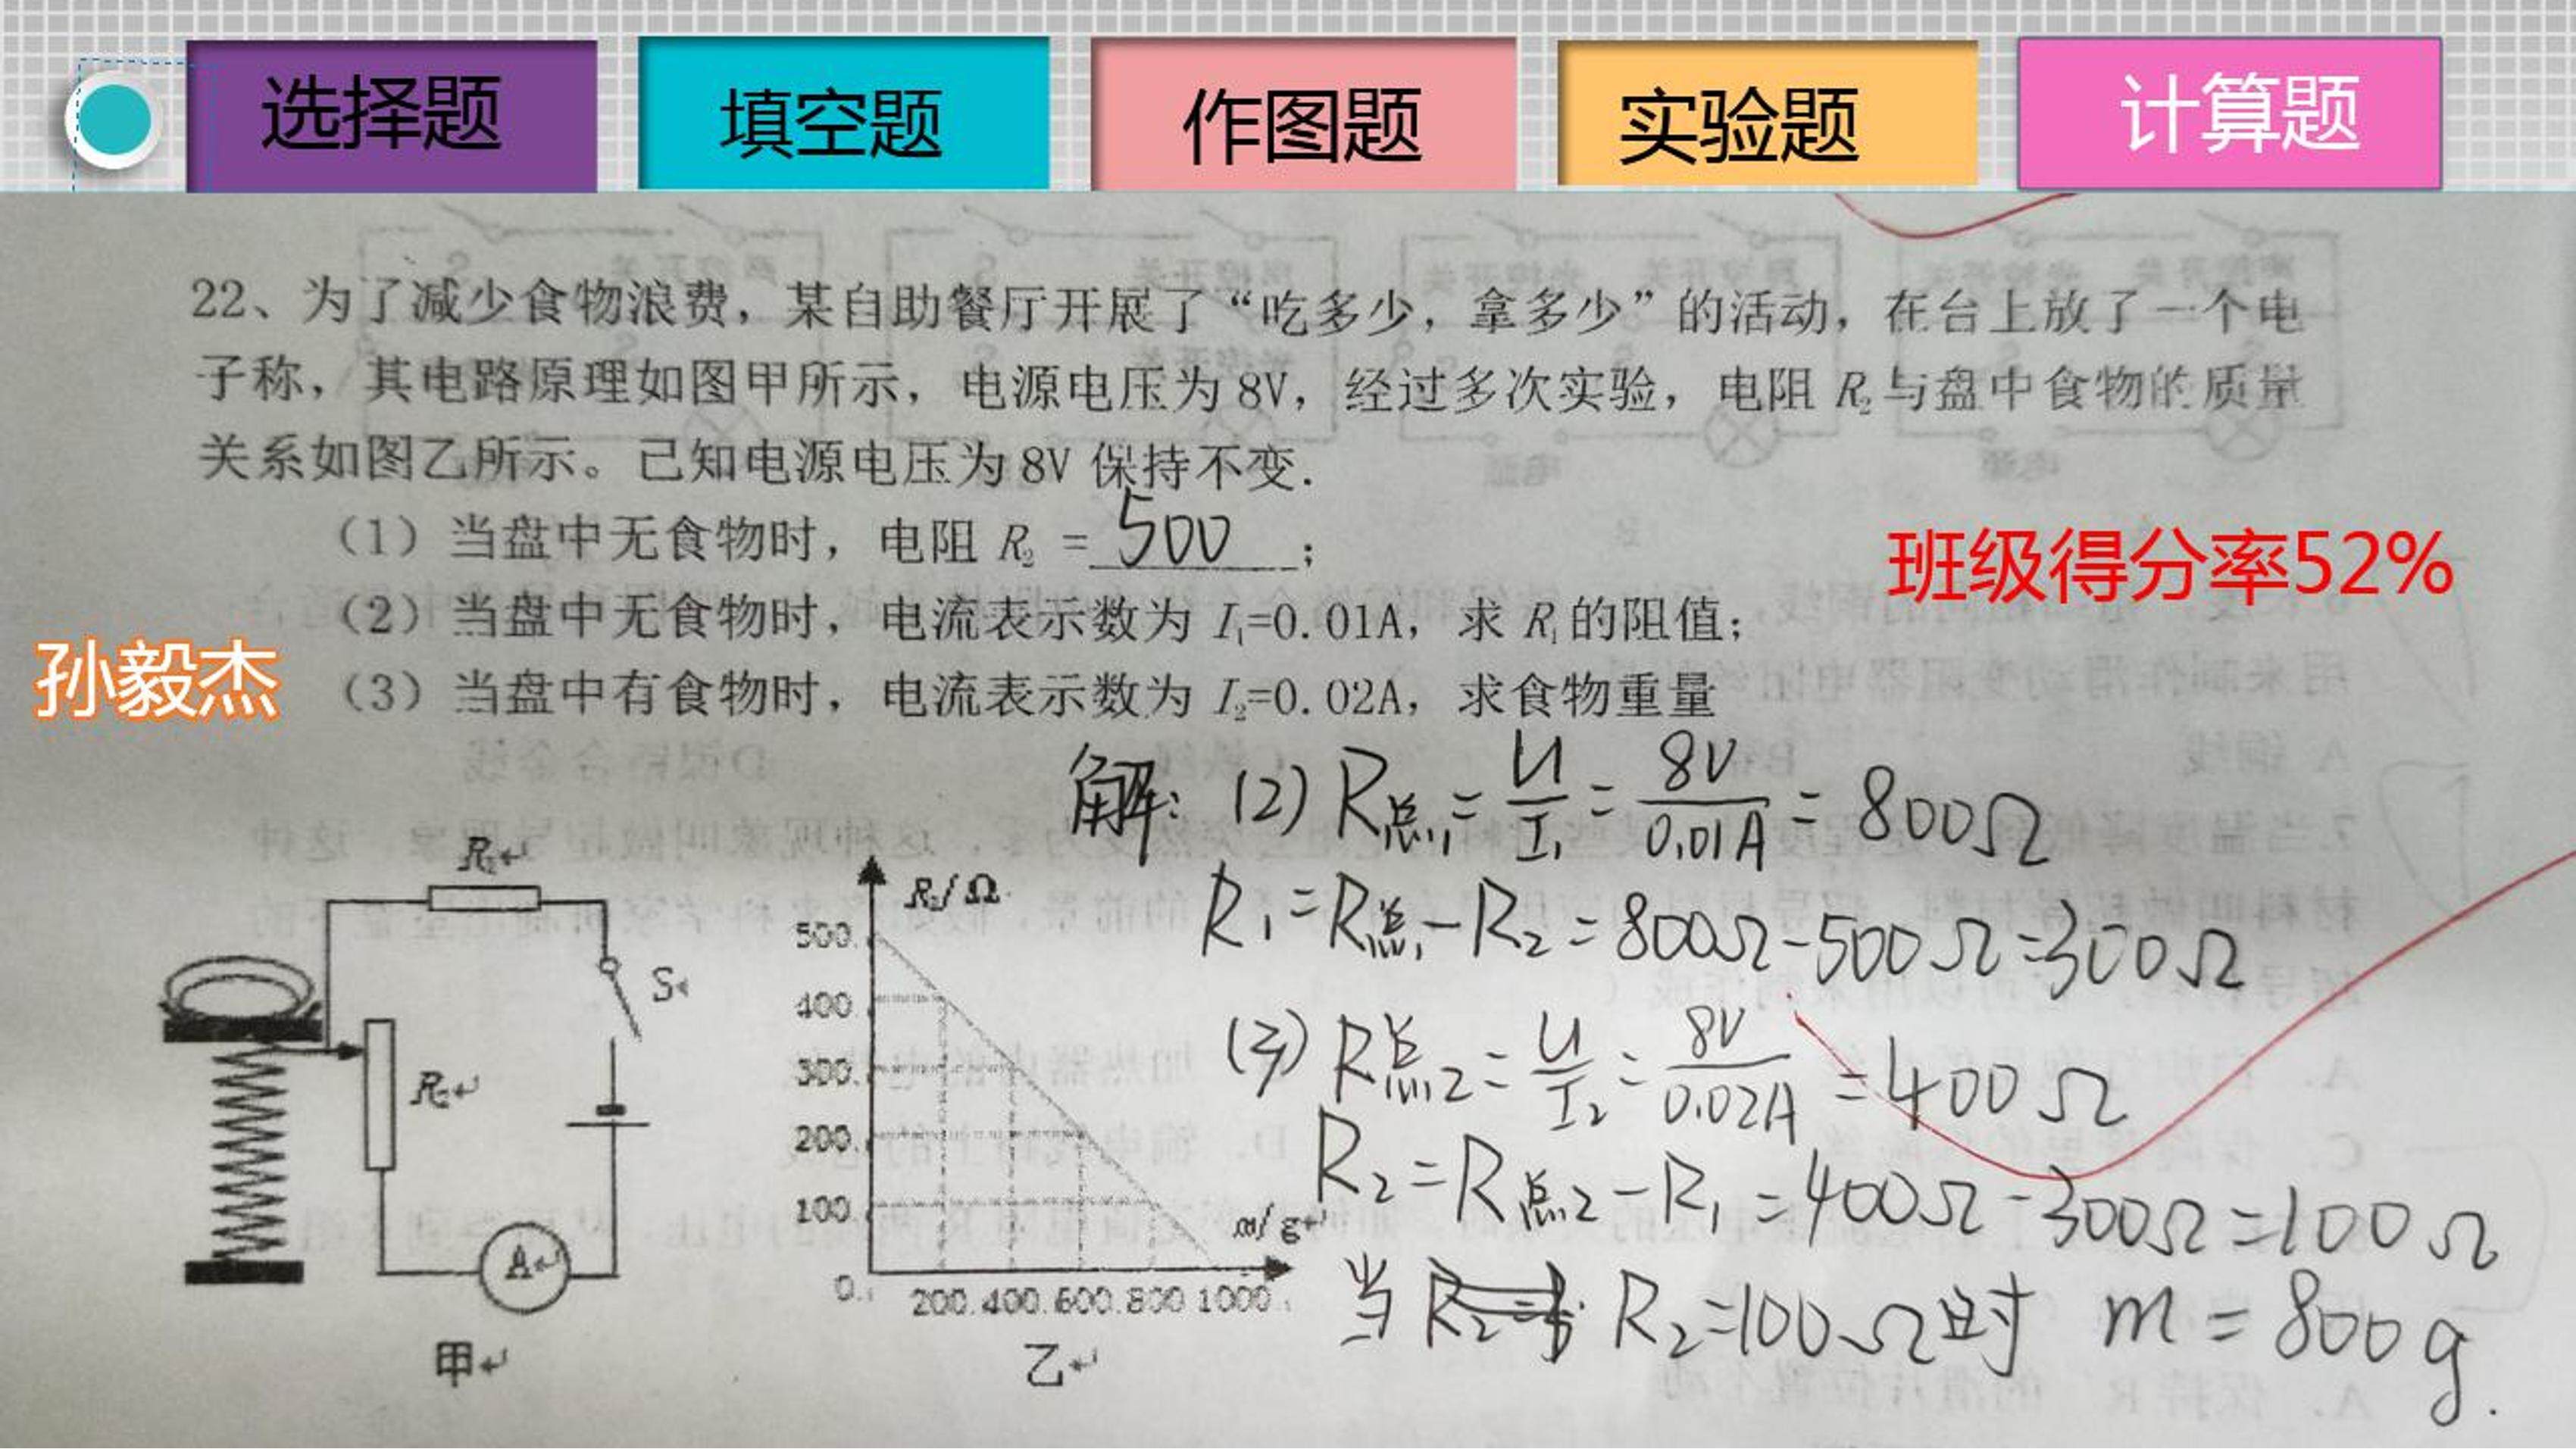 选择题 填空题 作图题 实验题 计算题
22、为了减少食物浪费，某自助餐厅开展了“吃多少，拿多少”的活动，在台上放了一个电
子称，其电路原理如图甲所示，电源电压为 8V，经过多次实验，电阻 R₂与盘中食物的质量
关系如图乙所示。已知电源电压为 8V 保持不变.
（1）当盘中无食物时，电阻 R₂ = 500 ；
班级得分率52%
（2）当盘中无食物时，电流表示数为 I₁=0.01A，求 R₁的阻值；
孙毅杰
（3）当盘中有食物时，电流表示数为 I₂=0.02A，求食物重量
解：(2) R总₁ = U/I₁ = 8V/0.01A = 800Ω
R₁ = R总₁ - R₂ = 800Ω - 500Ω = 300Ω
(3) R总2 = U/I₂ = 8V/0.02A = 400Ω
R₂ = R总2 - R₁ = 400Ω - 300Ω = 100Ω
当 R₂=100Ω时 m = 800g.
R₁
S
R₂
A
甲
R₂/Ω
500
400
300
200
100
0
m/g
200 400 600 800 1000
乙